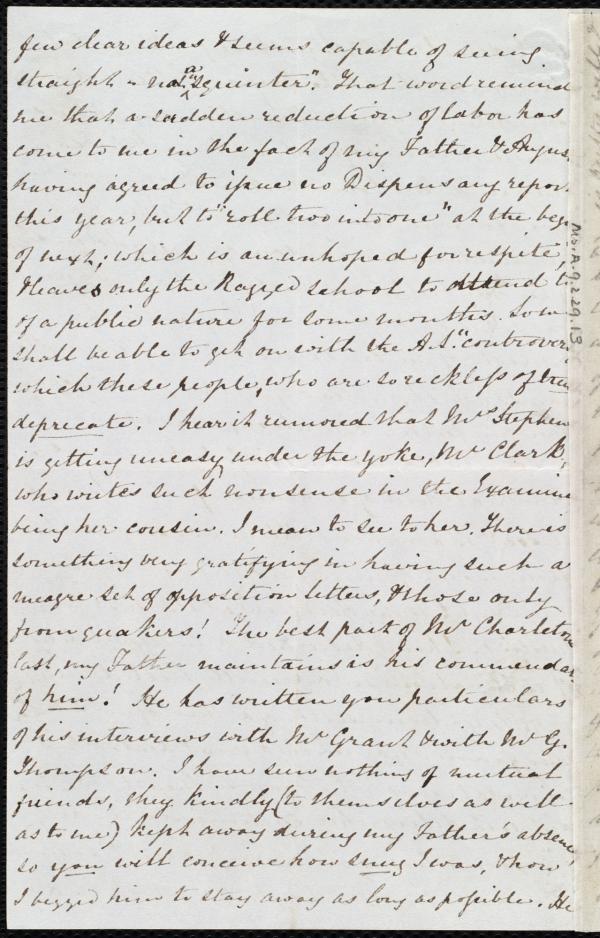 few clear ideas & seems capable of seeing
straight & not a "squinter". That word remind
me that a sudden reduction of labor has
come to me in the fact of my Father & Augus
having agreed to issue no Dispensary repor
this year, but to "roll two into one" at the beg
of next; which is an unhoped for respite,
& leaves only the Ragged school to attend t
of a public nature for some months. So we
shall be able to get on with the A.S. "controver
which these people, who are so reckless of
deprecate. I hear it rumored that Mrs Stephen
is getting uneasy under the yoke, Mr Clark,
who writes such nonsense in the Examine
being her cousin. I mean to see to her. There is
something very gratifying in having such a
meagre set of opposition letters, & those only
from quakers! The best part of Mr Charleton
last, my Father maintains is his commendat
of him! He has written you particulars
of his interviews with Mr Grant & with Mr G.
Thompson. I have seen nothing of mutual
friends, they kindly (to themselves as well
as to me) kept away during my Father's absence
so you will conceive how snug I was, & how
I begged him to stay away as long as possible. He
Ms.A.9.2.29.13